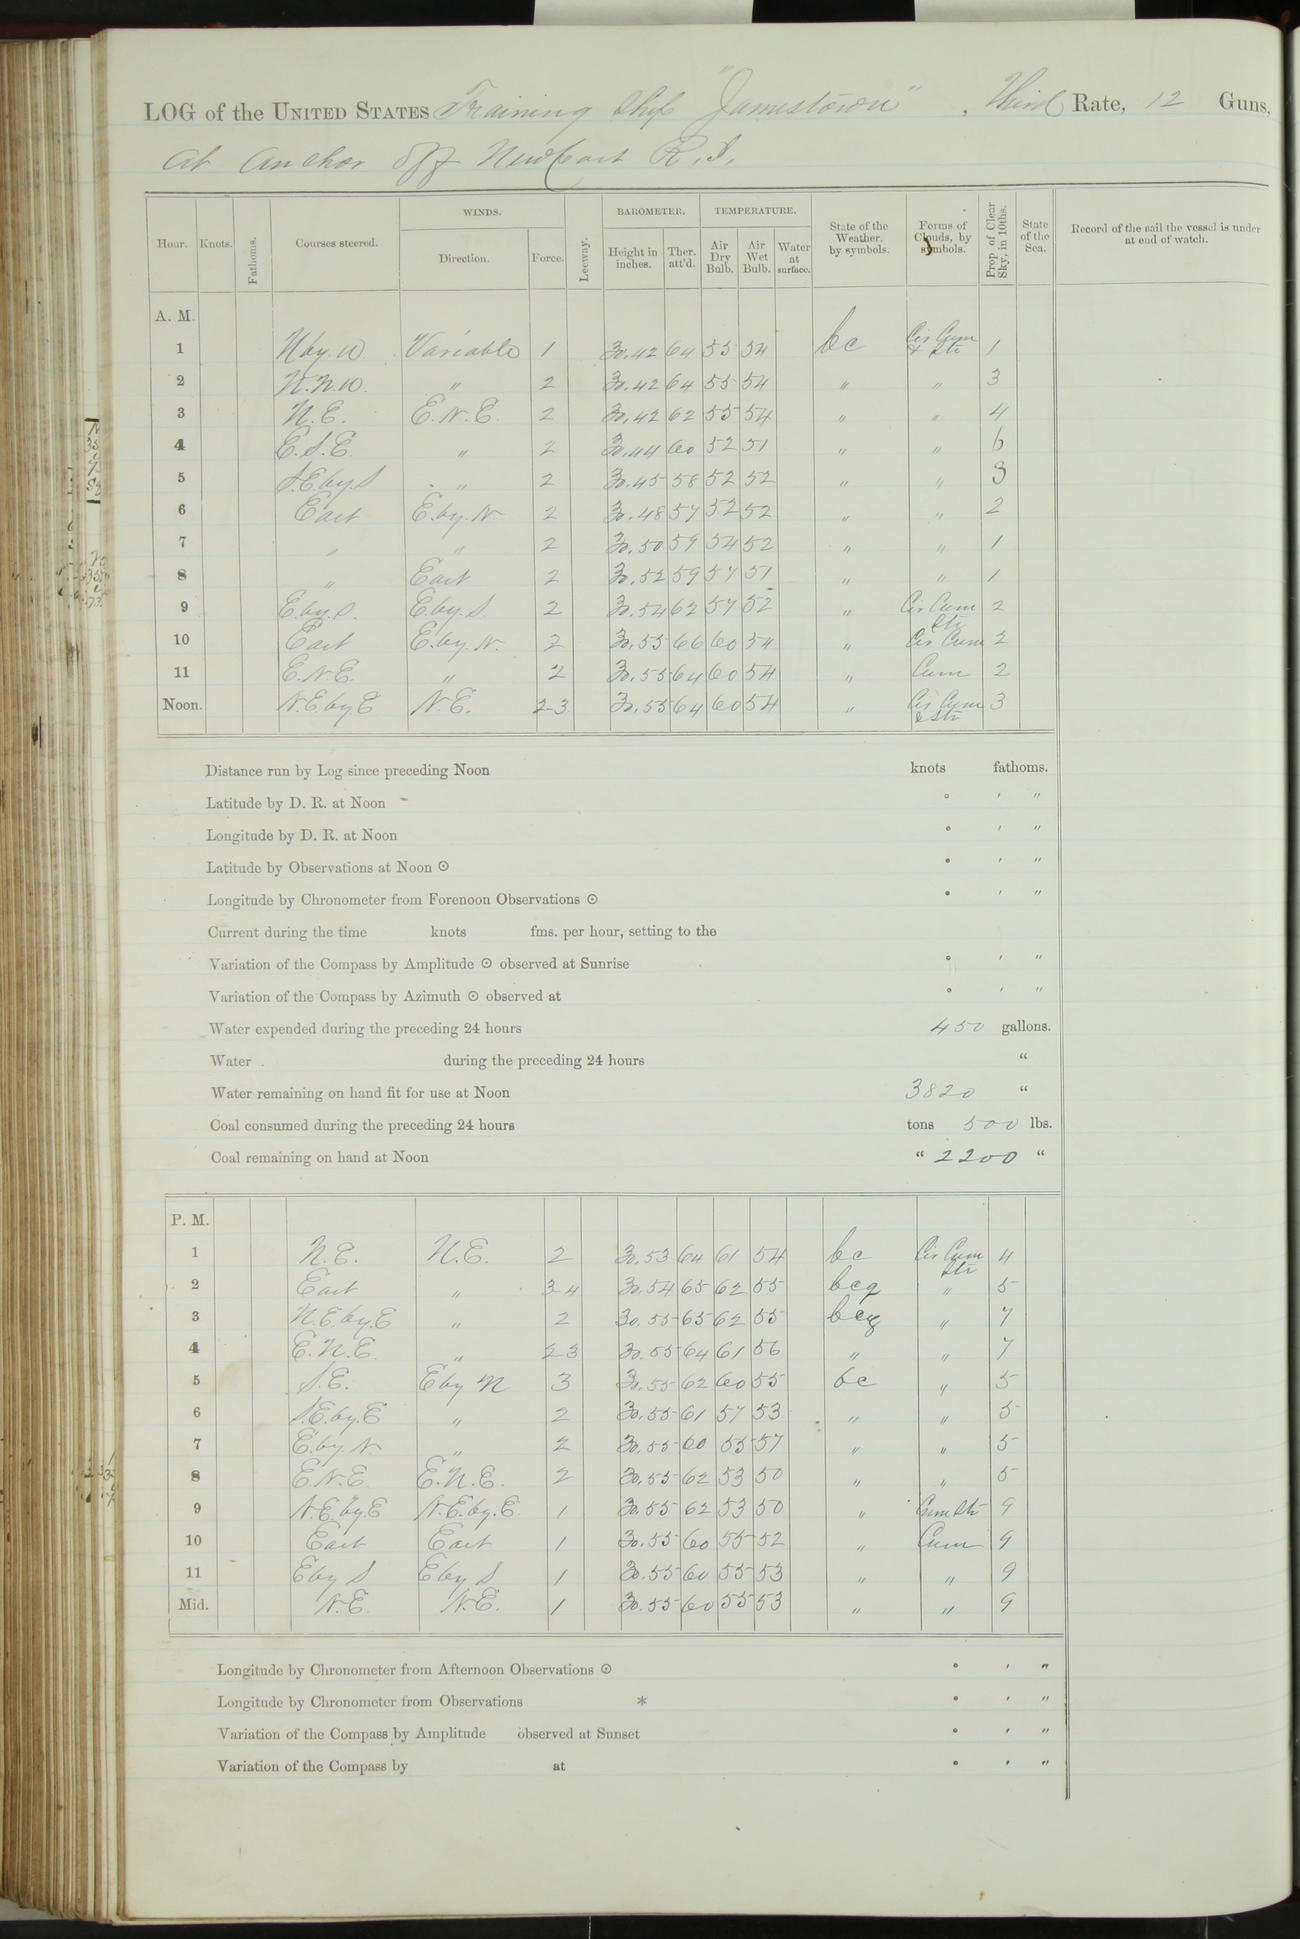 LOG of the UNITED STATES Training Ship "Jamestown", Third Rate, 12 Guns,
At anchor off Newport R.I.
WINDS. BAROMETER. TEMPERATURE.
Hour. Knots. Fathoms. Courses steered. Direction. Force. Leeway. Height in inches. Ther. att'd. Air Dry Bulb. Air Wet Bulb. Water at surface. State of the Weather, by symbols. Forms of Clouds, by symbols. Prop. of Clear Sky, in 10ths. State of the Sea. Record of the sail the vessel is under at end of watch.
A. M.
1 N by. W Variable 1 30.42 64 55 54 bc Cir Cum & Str 1
2 N.N.W. " 2 30.42 64 55 54 " " 3
3 N.E. E.N.E. 2 30.42 62 55 54 " " 4
4 E.S.E. " 2 30.44 60 52 51 " " 6
5 S.E. by. S " 2 30.45 58 52 52 " " 3
6 East E. by. N. 2 30.48 57 52 52 " " 2
7 " " 2 30.50 59 54 52 " " 1
8 " East 2 30.52 59 57 51 " " 1
9 E. by. S. E. by. S. 2 30.54 62 57 52 " Cir Cum Str 2
10 East E. by. N. 2 30.55 66 60 54 " Cir Cum 2
11 E.N.E. " 2 30.55 64 60 54 " Cum 2
Noon. N.E. by E N.E. 2-3 30.55 64 60 54 " Cir Cum & Str 3
Distance run by Log since preceding Noon knots fathoms.
Latitude by D. R. at Noon ° ′ ″
Longitude by D. R. at Noon ° ′ ″
Latitude by Observations at Noon ☉ ° ′ ″
Longitude by Chronometer from Forenoon Observations ☉ ° ′ ″
Current during the time knots fms. per hour, setting to the
Variation of the Compass by Amplitude ☉ observed at Sunrise ° ′ ″
Variation of the Compass by Azimuth ☉ observed at ° ′ ″
Water expended during the preceding 24 hours 450 gallons.
Water during the preceding 24 hours "
Water remaining on hand fit for use at Noon 3820 "
Coal consumed during the preceding 24 hours tons 500 lbs.
Coal remaining on hand at Noon " 2200 "
P. M.
1 N.E. N.E. 2 30.53 64 61 54 bc Cir Cum Str 4
2 East " 3-4 30.54 65 62 55 bcq " 5
3 N.E. by. E " 2 30.55 65 62 55 bcq " 7
4 E.N.E. " 2-3 30.55 64 61 56 " " 7
5 S.E. E by N 3 30.55 62 60 55 bc " 5
6 S.E. by. E " 2 30.55 61 57 53 " " 5
7 E. by. N " 2 30.55 60 55 57 " " 5
8 E.N.E. E.N.E. 2 30.55 62 53 50 " " 5
9 N.E. by. E N.E. by. E. 1 30.55 62 53 50 " Cum Str 9
10 East East 1 30.55 60 55 52 " Cum 9
11 E by S E by S 1 30.55 60 55 53 " " 9
Mid. N.E. N.E. 1 30.55 60 55 53 " " 9
Longitude by Chronometer from Afternoon Observations ☉ ° ′ ″
Longitude by Chronometer from Observations * ° ′ ″
Variation of the Compass by Amplitude observed at Sunset ° ′ ″
Variation of the Compass by at ° ′ ″